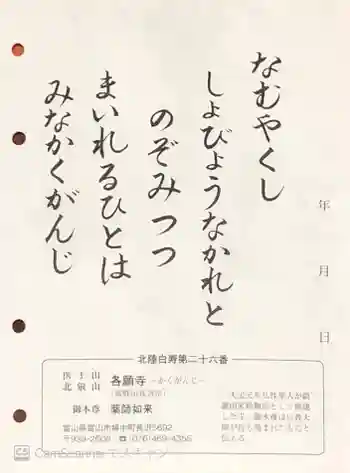 なむやくし
しょびょうなかれと
のぞみつつ
まいれるひとは
みなかくがんじ
年 月 日
北陸白寿第二十六番
医王山
北泉山
各願寺 ーかくがんじー
御本尊 薬師如来
富山県富山市婦中町長沢5692
〒939-2608 ☎(076)469-4356
大宝元年仏性聖人が
CamScanner